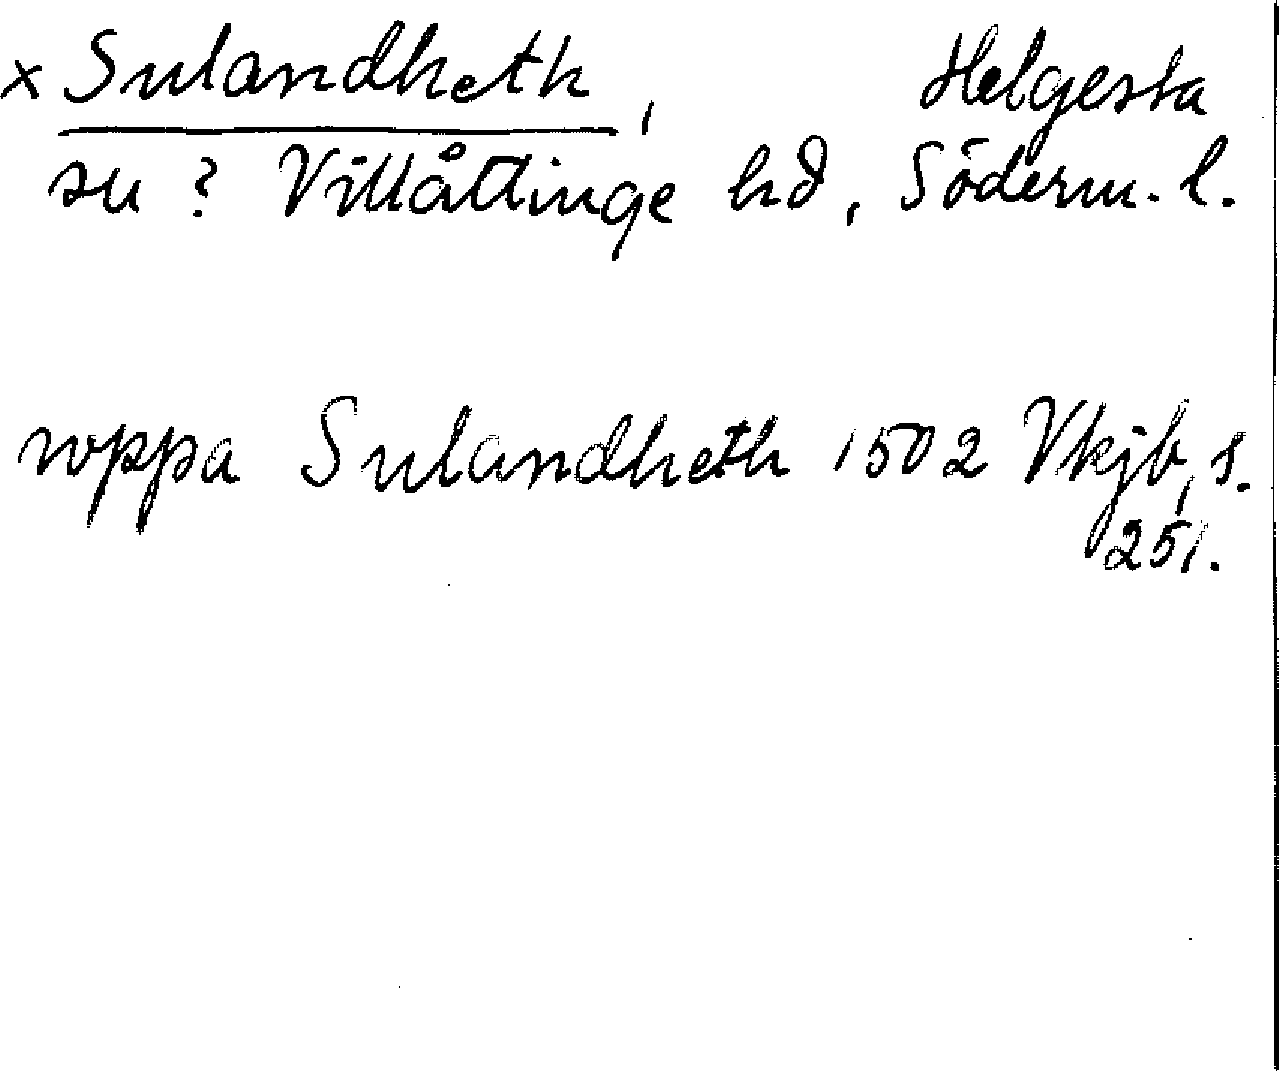 x Sulandheth, Helgesta
sn ? Villåttinge hd, Söderm. l.
vppa Sulandheth 1502 Vkjb, s.
251.